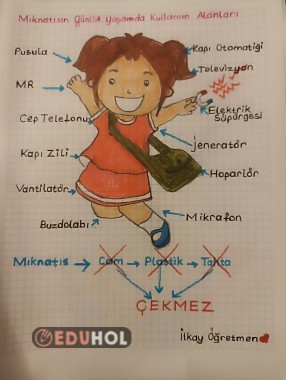 Mıknatısın Günlük Yaşamda Kullanım Alanları
Pusula
Kapı Otomatiği
MR
Televizyon
Cep Telefonu
Elektrik
Süpürgesi
Kapı Zili
jeneratör
Vantilatör
Hoparlör
Buzdolabı
Mikrofon
Mıknatıs → Cam → Plastik → Tahta
ÇEKMEZ
EDUHOL
İlkay Öğretmen